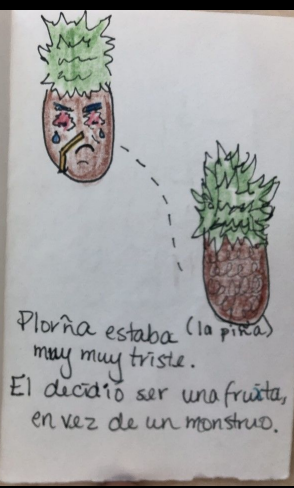 Plorña estaba (la piña)
muy muy triste.
El decidió ser una fruita,
en vez de un monstruo.